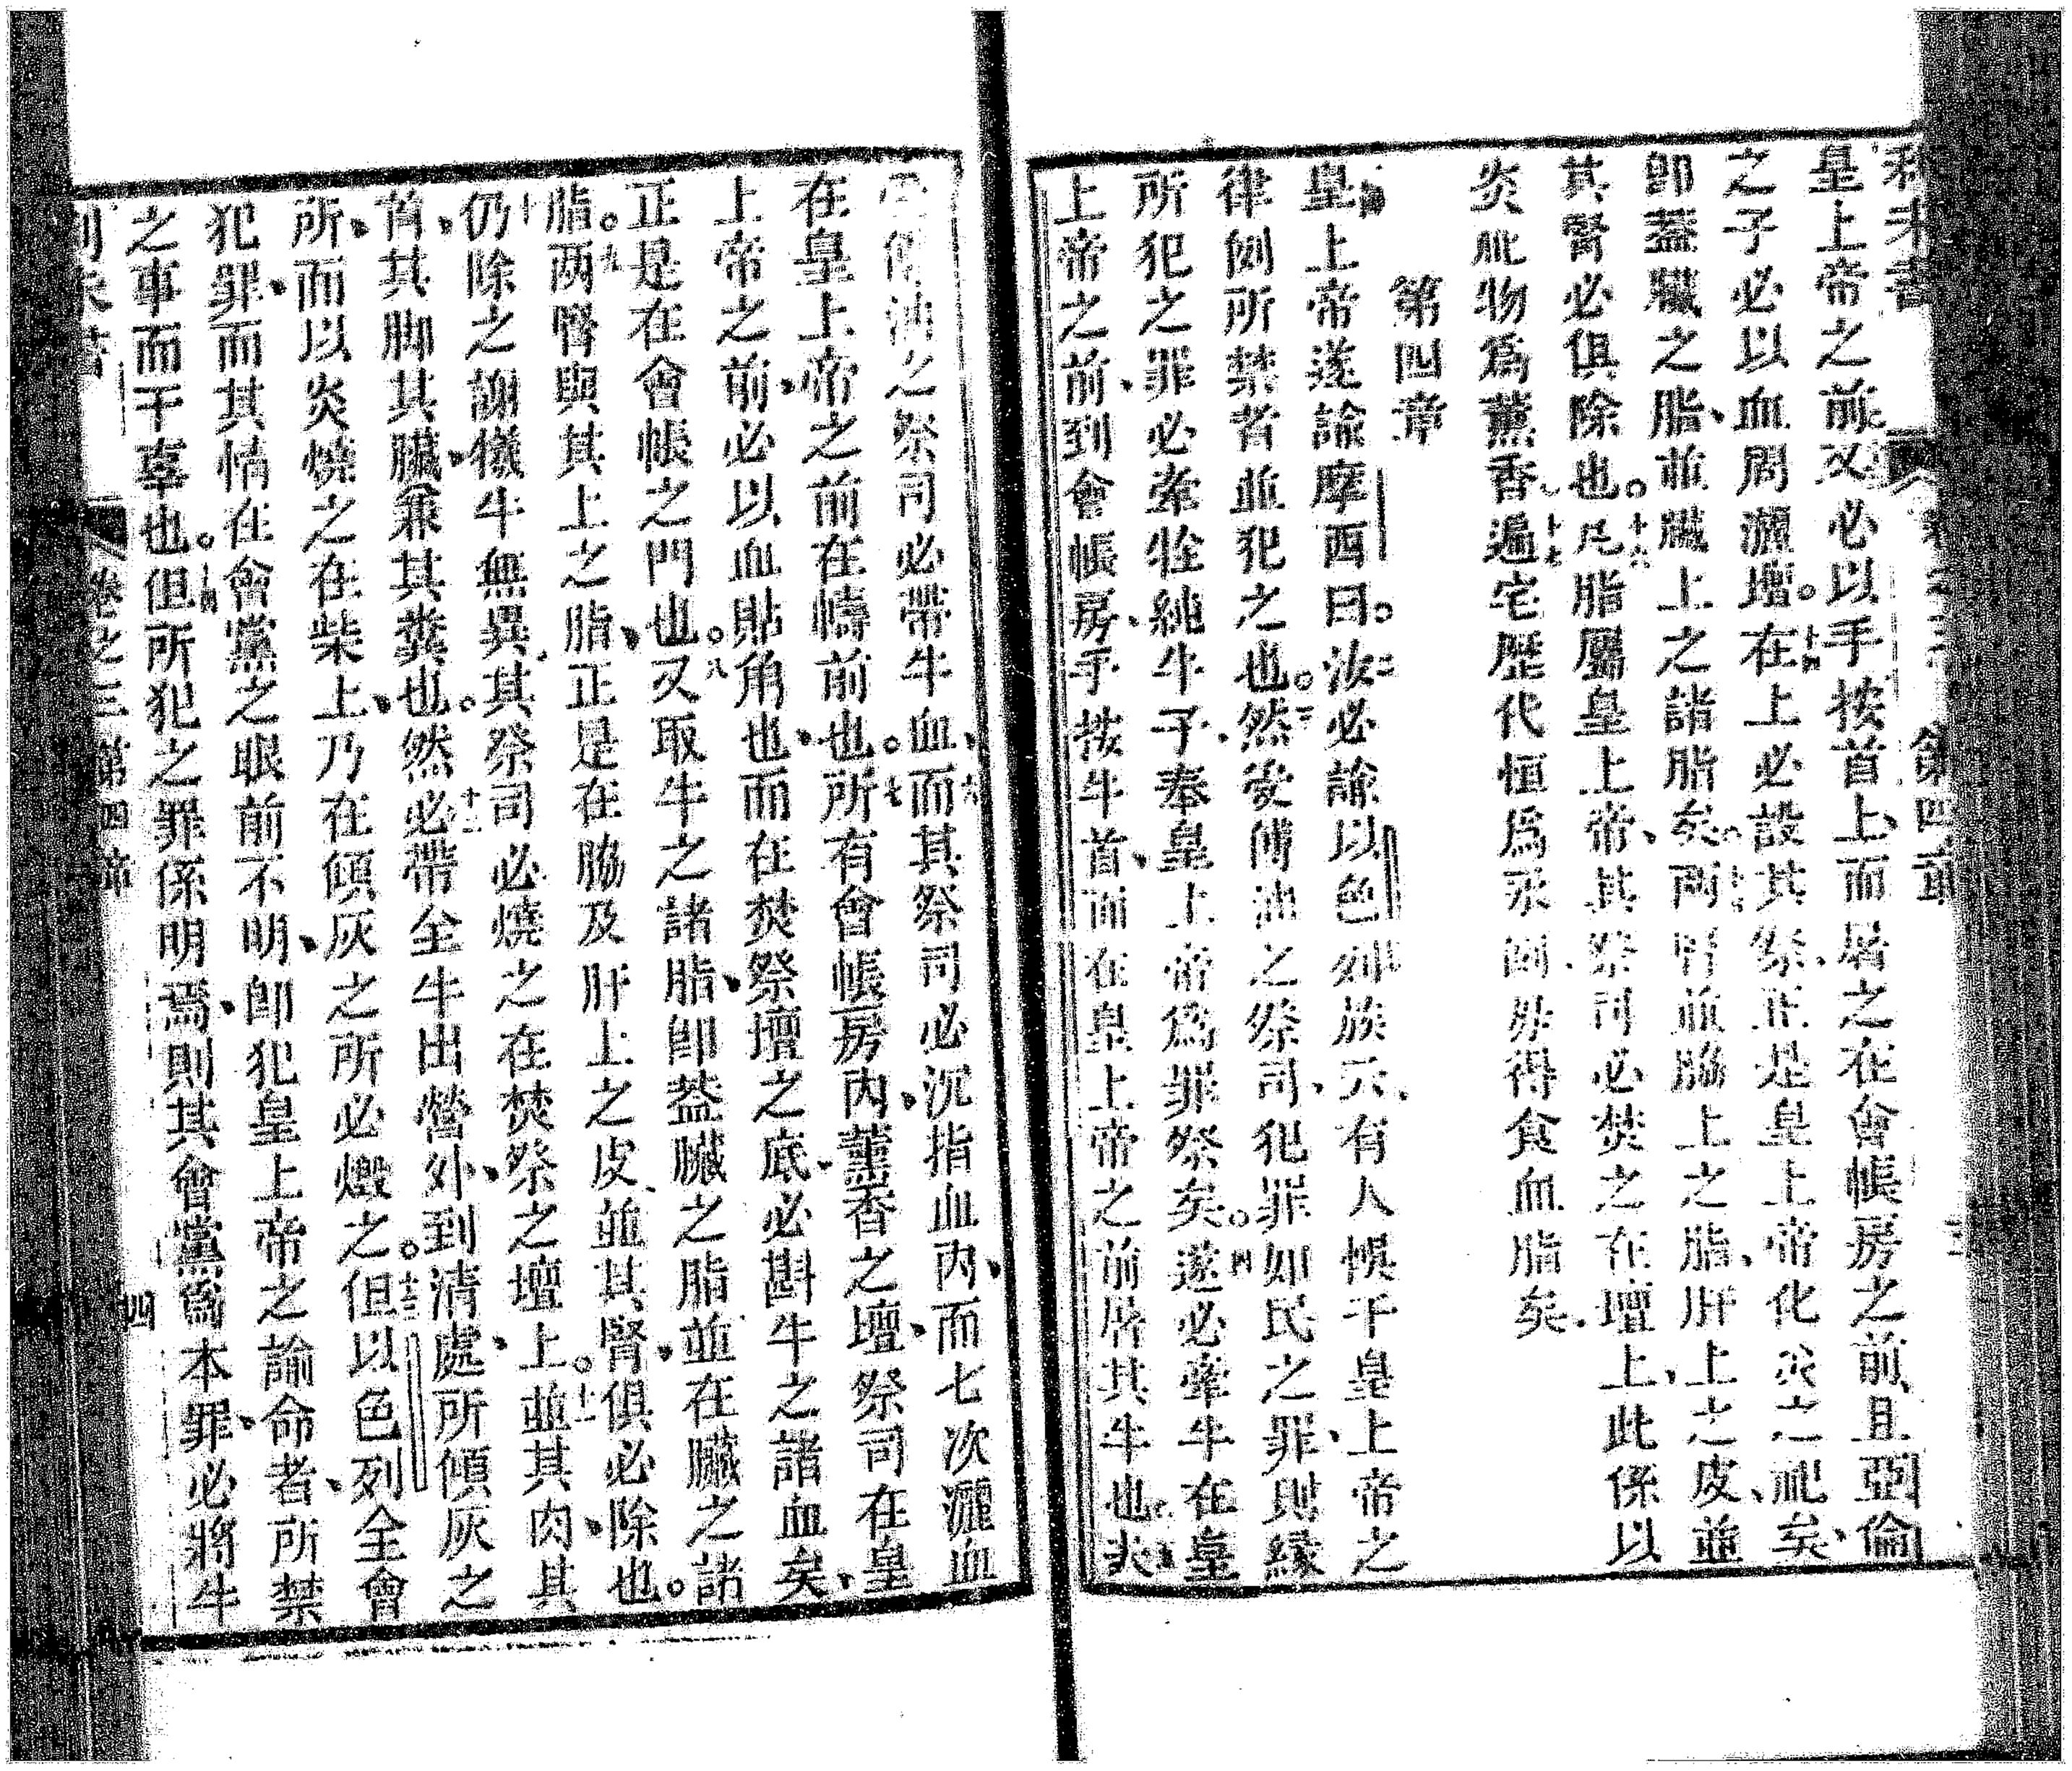 皇上帝之前、又必以手按首上、而屠之在會帳房之前、且亞倫
之子必以血周灑壇。十四在上必設其祭、正是皇上帝化火之祀矣、
卽蓋臟之脂、並臟上之諸脂矣。十五兩腎並脇上之脂、肝上之皮、並
其腎必俱除也。十六凡脂屬皇上帝、其祭司必焚之在壇上、此係以
炎祀物爲薰香。十七遍宅歷代恒爲永例、毋得食血脂矣。
第四章
皇上帝遂諭摩西曰。二汝必諭以色列族云、有人悞干皇上帝之
律例所禁者、並犯之也。三然受傅油之祭司、犯罪如民之罪、則緣
所犯之罪、必牽牷純牛子、奉皇上帝爲罪祭矣。四遂必牽牛在皇
上帝之前、到會帳房、手按牛首、而在皇上帝之前屠其牛也。五夫
受傅油之祭司必帶牛血、六而其祭司必沉指血內、而七次灑血
在皇上帝之前在幬前也。七所有會帳房內、薰香之壇、祭司在皇
上帝之前、必以血貼角也、而在焚祭壇之底、必斟牛之諸血矣、
正是在會帳之門也。八又取牛之諸脂、卽蓋臟之脂並在臟之諸
脂。九两腎與其上之脂、正是在脇及肝上之皮、並其腎、俱必除也。
十仍除之謝犧牛無異、其祭司必燒之在焚祭之壇上。十一並其肉、其
首、其脚、其臟、兼其糞也。十二然必帶全牛出營外、到清處、所傾灰之
所、而以炎燒之在柴上、乃在傾灰之所必燬之。十三但以色列全會
犯罪、而其情在會黨之眼前不明、卽犯皇上帝之諭命者、所禁
之事而干辜也。十四但所犯之罪係明焉、則其會黨爲本罪、必將牛
卷之三 第四章 四